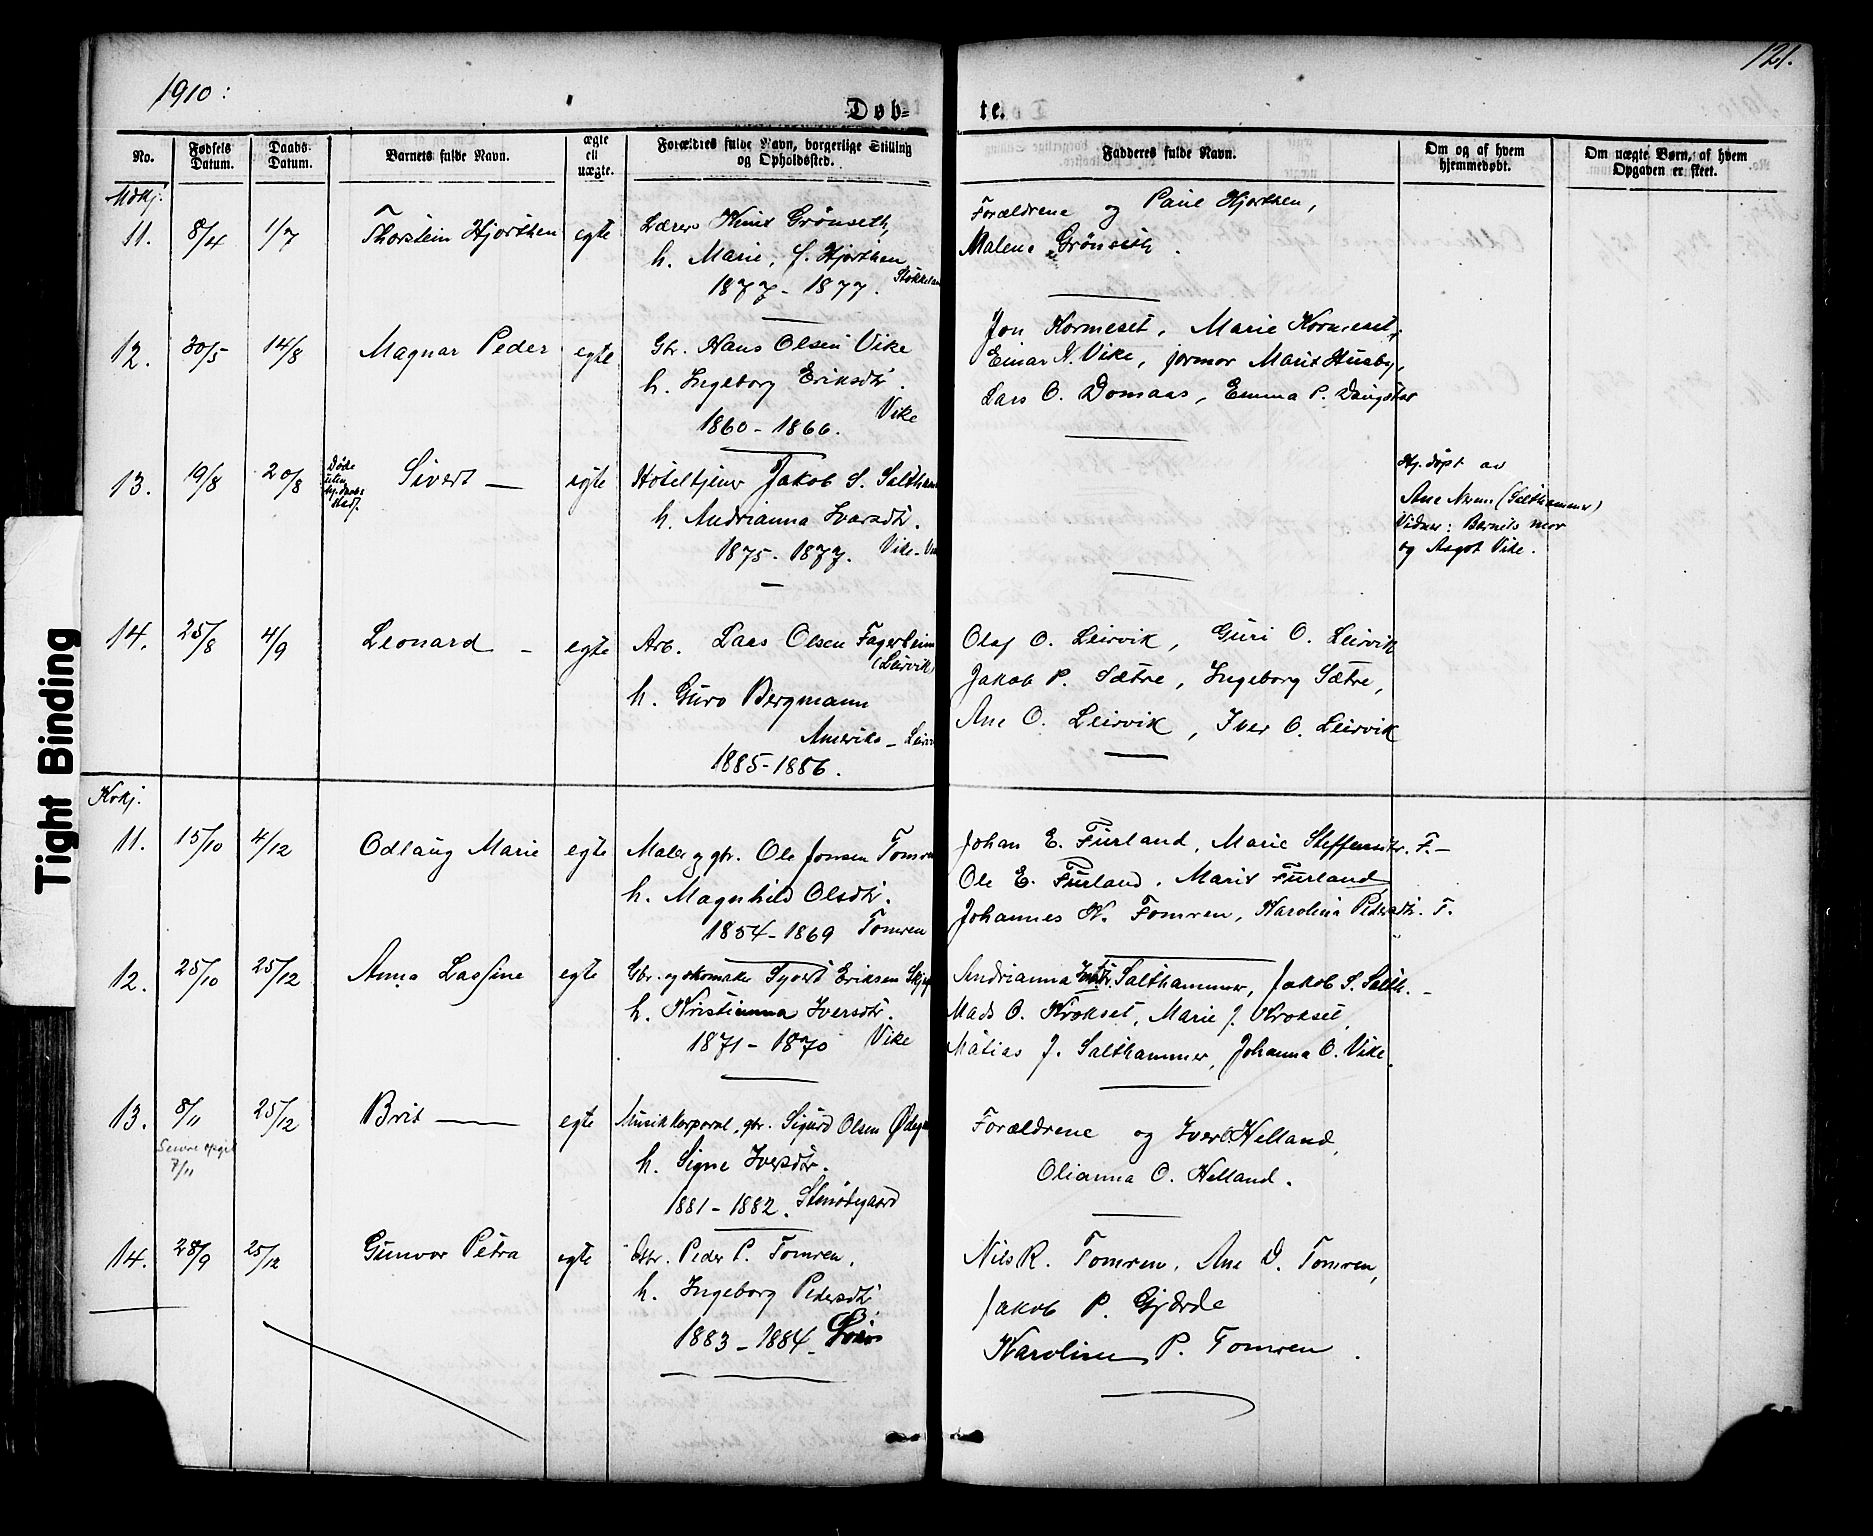 1910:
121.
Døb-
te.
No.
Fødsels Datum.
Daabs-Datum.
Barnets fulde Navn.
ægte ell uægte.
Forældres fulde Navn, borgerlige Stilling og Opholdssted.
Faddernes fulde Navn.
Om og af hvem hjemmedøbt.
Om uægte Børn, af hvem Opgaven er skeet.
11. 8/4 1/7 Thorstein Hjorthen egte Lærer Knut Grönseth,
h. Marie, f. Hjorthen
1877 - 1877.
Forældrene og Paul Hjorthen,
Malene Grönseth.
12. 30/5 14/8 Magnar Peder egte Gbr. Hans Olsen Vike
h. Ingeborg Eriksdtr.
Vike
1860 - 1866.
Jon Kormeset, Marie Kormeset,
Einar N. Vike, jormor Marit Husby,
Lars O. Domaas, Emma P. Daugstad
13. 19/8 20/8 Døde uten Sivert — egte Hoteltjener Jakob S. Salthammer
h. Andrianna Ivarsdtr.
1875 - 1877. Vike-
Hj.døpt av
Ane (Salthammer)
Vidner: Barnets mor
og Aagot Vike.
14. 25/8 4/9 Leonard - egte Arb. Lars Olsen Fagerheim
(Leirvik)
h. Guro Bergmann
Amerika - Leirvik
1885-1886.
Olaf O. Leirvik, Guri O. Leirvik
Jakob P. Sætre, Ingeborg Sætre,
Ane O. Leirvik, Iver O. Leirvik
11. 15/10 4/12 Odlaug Marie egte Maler og gbr. Ole Jonsen Tomren
h. Magnhild Olsdtr.
1854-1869 Tomren
Johan E. Furland, Marie Steffensdtr. F.-
Ole E. Furland, Marit Furland,
Johannes K. Tomren, Karolina Pedersdtr. T.
12. 25/10 25/12 Anna Lassine egte Gbr. og skomaker Syvert Eriksen
h. Kristianna Iversdtr.
1871 - 1870 Vike
Andrianna Salthammer, Jakob S. Salth. -
Mads O. Krokset, Marie J. Krokset,
Matias J. Salthammer, Johanna O. Vike.
13. 8/11 25/12 Brit — egte Musikkorporal, gbr. Sigurd Olsen
Senere opgit
7/11
h. Signe Iversdtr.
1881 - 1882.
Forældrene og Iver Helland,
Olianna O. Helland.
14. 28/9 25/12 Gunvor Petra egte Gbr. Peder P. Tomren,
h. Ingeborg Pedersdtr.
1883 - 1884.
Nils R. Tomren, Ane D. Tomren,
Jakob P. Gjærde
Karoline P. Tomren.
Tight Binding